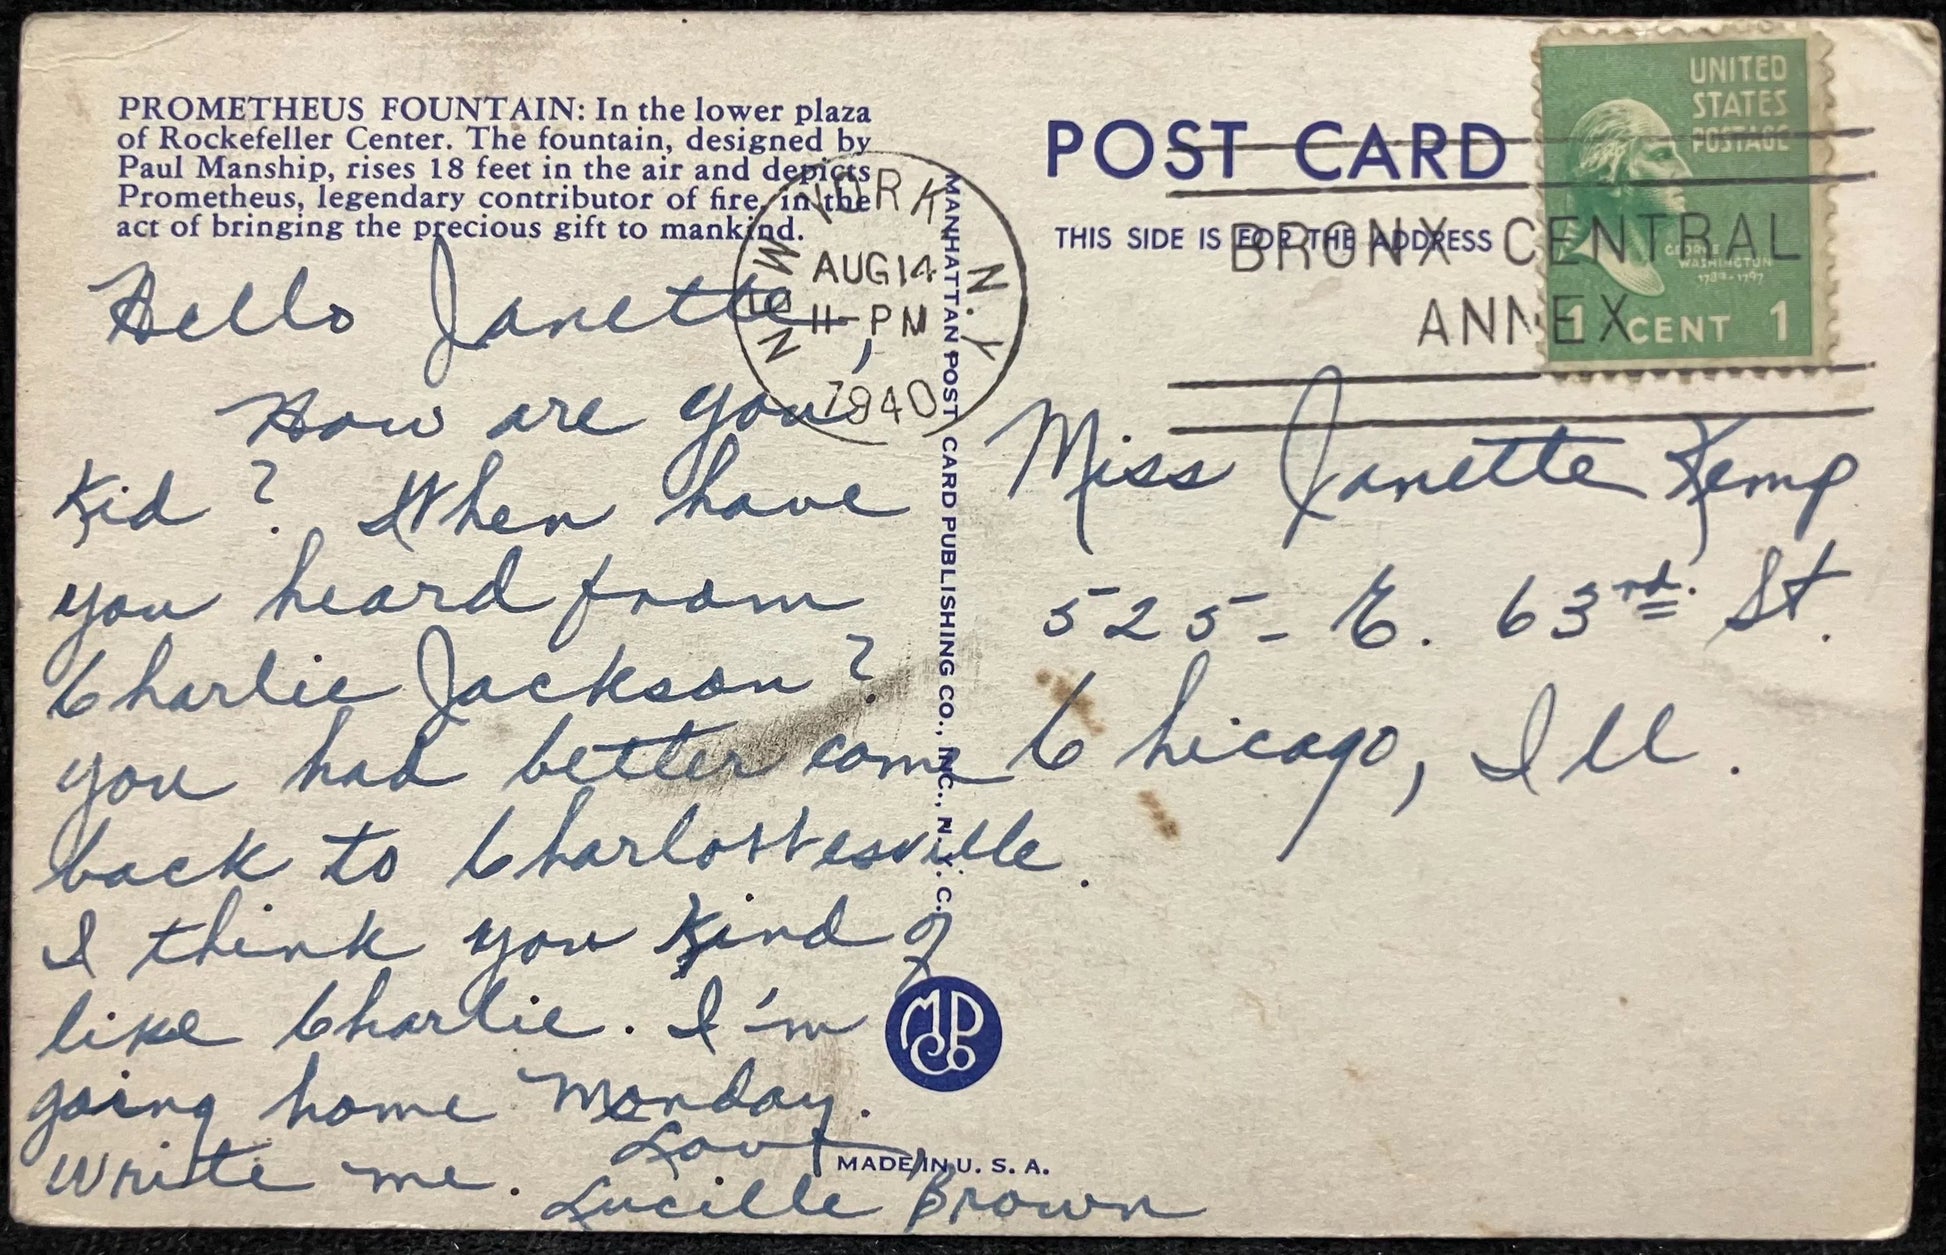 PROMETHEUS FOUNTAIN: In the lower plaza
of Rockefeller Center. The fountain, designed by
Paul Manship, rises 18 feet in the air and depicts
Prometheus, legendary contributor of fire, in the
act of bringing the precious gift to mankind.
Hello Janette,
How are you
Kid? When have
you heard from
Charlie Jackson?
You had better come
back to Charlottesville.
I think you kind of
like Charlie. I'm
going home Monday.
Write me.
Love,
Lucille Brown
NEW YORK N.Y.
AUG 14
11-PM
1940
MANHATTAN POST CARD PUBLISHING CO., INC., N.Y.C.
MPCCo
MADE IN U.S.A.
POST CARD
THIS SIDE IS FOR THE ADDRESS
BRONX CENTRAL
ANNEX
UNITED
STATES
POSTAGE
GEORGE
WASHINGTON
1789-1797
1 CENT 1
Miss Janette Kemp
525-E. 63rd. St.
Chicago, Ill.